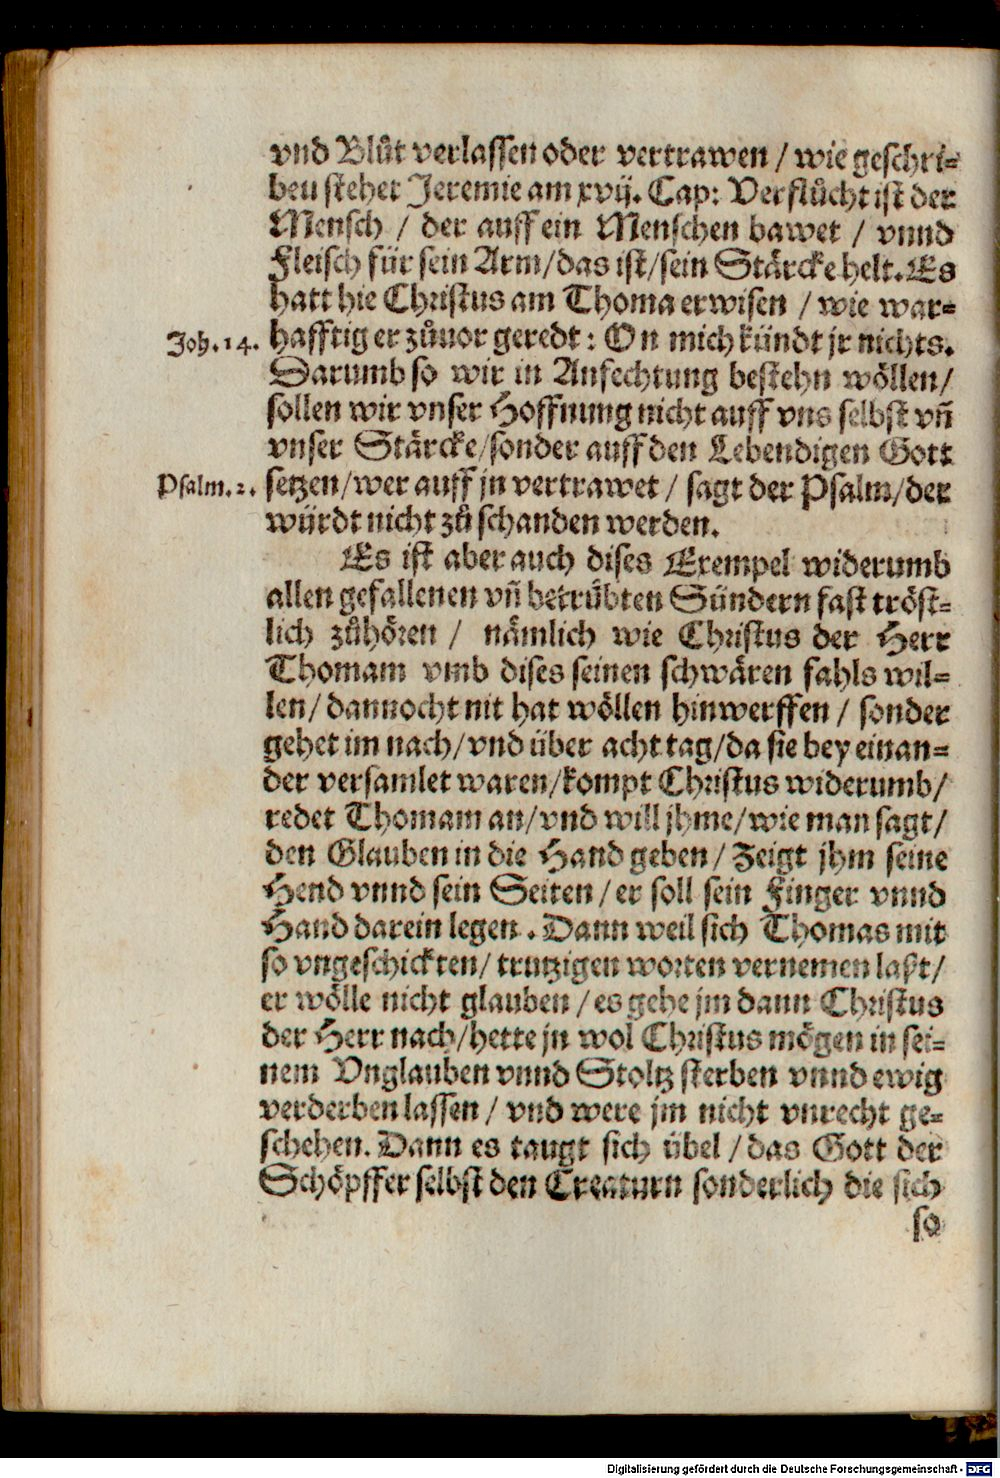 vnd Blůt verlassen oder vertrawen / wie geschri-
ben stehet Jeremie am xvij. Cap: Verflůcht ist der
Mensch / der auff ein Menschen bawet / vnnd
Fleisch für sein Arm/das ist/sein Stärcke helt. Es
hatt hie Christus am Thoma erwisen / wie war-
Joh. 14. hafftig er zůuor geredt: On mich kündt jr nichts.
Darumb so wir in Anfechtung bestehn wöllen/
sollen wir vnser Hoffnung nicht auff vns selbst vñ
vnser Stärcke/sonder auff den Lebendigen Gott
Psalm. 2. setzen/wer auff jn vertrawet / sagt der Psalm/der
würdt nicht zů schanden werden.
Es ist aber auch dises Exempel widerumb
allen gefallenen vñ betrůbten Sündern fast tröst-
lich zůhören / nämlich wie Christus der Herr
Thomam vmb dises seinen schwären fahls wil-
len/ dannocht nit hat wöllen hinwerffen / sonder
gehet im nach/vnd über acht tag/da sie bey einan-
der versamlet waren/kompt Christus widerumb/
redet Thomam an/vnd will jhme/wie man sagt/
den Glauben in die Hand geben / Zeigt jhm seine
Hend vnnd sein Seiten / er soll sein Finger vnnd
Hand darein legen. Dann weil sich Thomas mit
so vngeschickten/ trutzigen worten vernemen laßt/
er wölle nicht glauben / es gehe jm dann Christus
der Herr nach/hette jn wol Christus mögen in sei-
nem Vnglauben vnnd Stoltz sterben vnnd ewig
verderben lassen / vnd were jm nicht vnrecht ge-
schehen. Dann es taugt sich übel / das Gott der
Schöpffer selbst den Creaturn sonderlich die sich
so
Digitalisierung gefördert durch die Deutsche Forschungsgemeinschaft - DFG